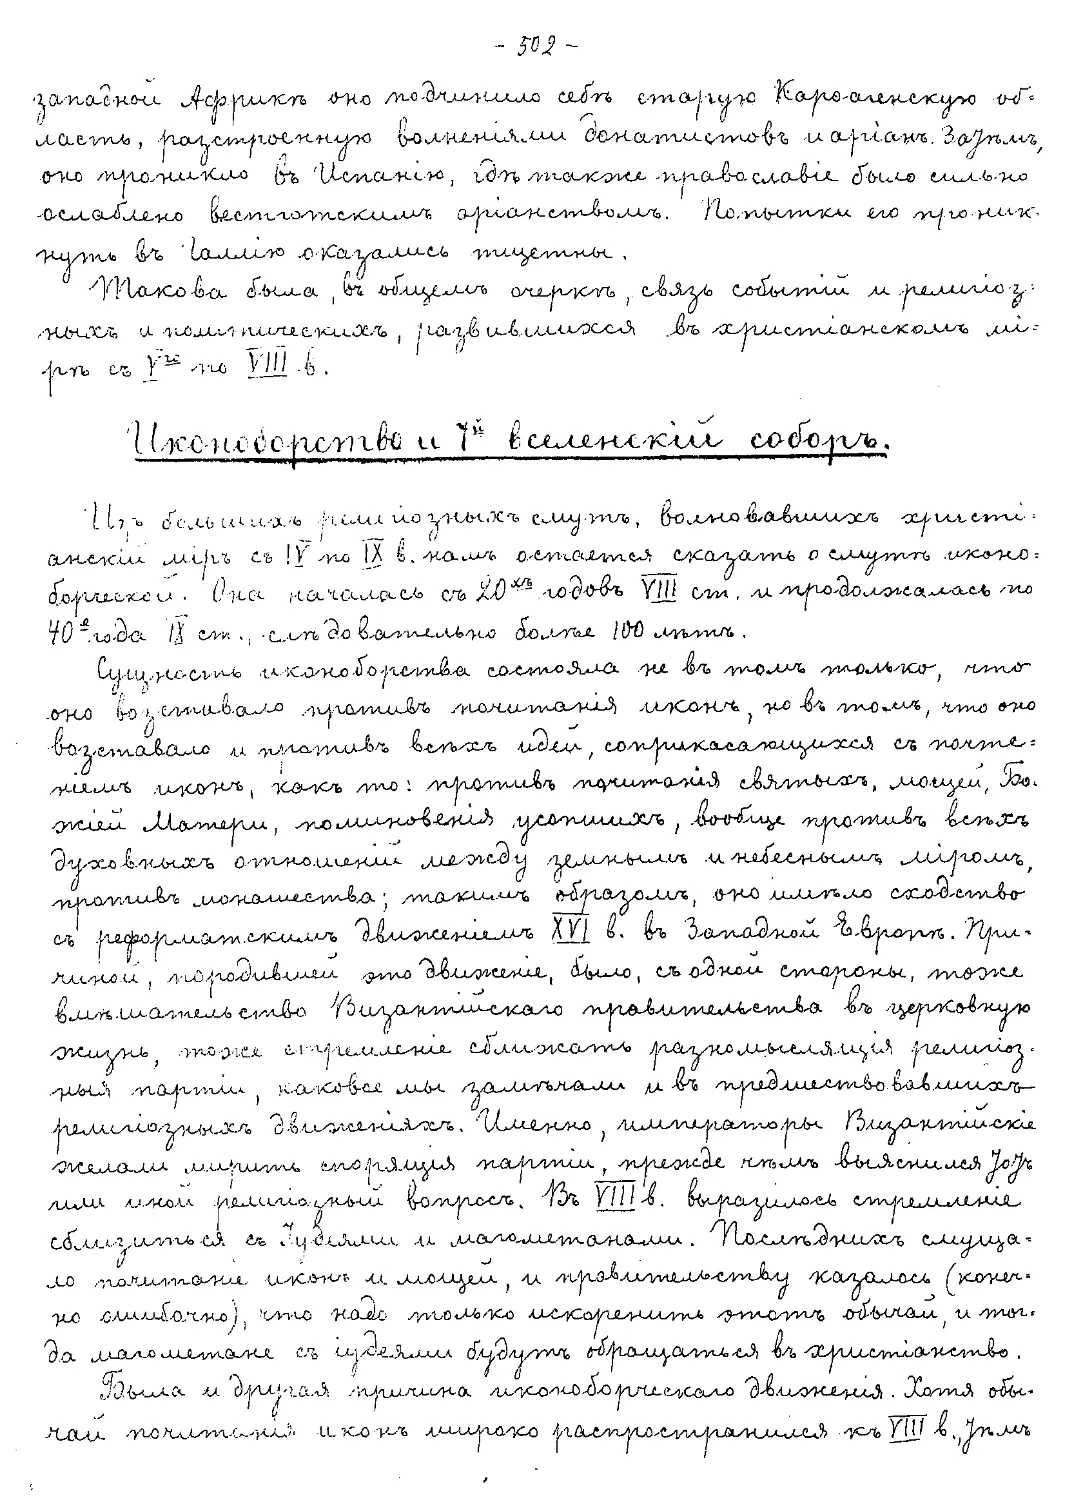 - 502 -
западной Африкѣ оно подчинило себѣ старую Карѳагенскую об-
ласть, разстроенную волненіями донатистовъ и аріанъ. Затѣмъ,
оно проникло въ Испанію, гдѣ также православіе было сильно
ослаблено вестготскимъ аріанствомъ. Попытки его проник-
нуть въ Галлію оказались тщетны.
Такова была, въ общемъ очеркѣ, связь событій и религіоз-
ныхъ и политическихъ, развившихся въ христіанскомъ мі-
рѣ съ V го по VIII в.
Иконоборство и 7й вселенскій соборъ.
Изъ большихъ религіозныхъ смутъ, волновавшихъ христі-
анскій міръ съ IV по IX в. намъ остается сказать о смутѣ иконо-
борческой. Она началась съ 20хъ годовъ VIII ст. и продолжалась по
40е года IX ст., слѣдовательно болѣе 100 лѣтъ.
Сущность иконоборства состояла не въ томъ только, что
оно возставало противъ почитанія иконъ, но въ томъ, что оно
возставало и противъ всѣхъ идей, соприкасающихся съ почте-
ніемъ иконъ, какъ то: противъ почитанія святыхъ, мощей, Бо-
жіей Матери, поминовенія усопшихъ, вообще противъ всѣхъ
духовныхъ отношеній между земнымъ и небеснымъ міромъ,
противъ монашества; такимъ образомъ, оно имѣло сходство
съ реформатскимъ движеніемъ XVI в. въ Западной Европѣ. При-
чиной, породившей это движеніе, было, съ одной стороны, тоже
вмѣшательство Византійскаго правительства въ церковную
жизнь, тоже стремленіе сближать разномыслящія религіоз-
ныя партіи, каковое мы замѣчали и въ предшествовавшихъ
религіозныхъ движеніяхъ. Именно, императоры Византійскіе
желали мирить спорящія партіи, прежде чѣмъ выяснился тотъ
или иной религіозный вопросъ. Въ VIII в. выразилось стремленіе
сблизиться съ Іудеями и магометанами. Послѣднихъ смуща-
ло почитаніе иконъ и мощей, и правительству казалось (конеч-
но ошибочно), что надо только искоренить этотъ обычай, и тог-
да магометане съ іудеями будутъ обращаться въ христіанство.
Была и другая причина иконоборческаго движенія. Хотя обы-
чай почитанія иконъ широко распространился къ VIII в., тѣмъ